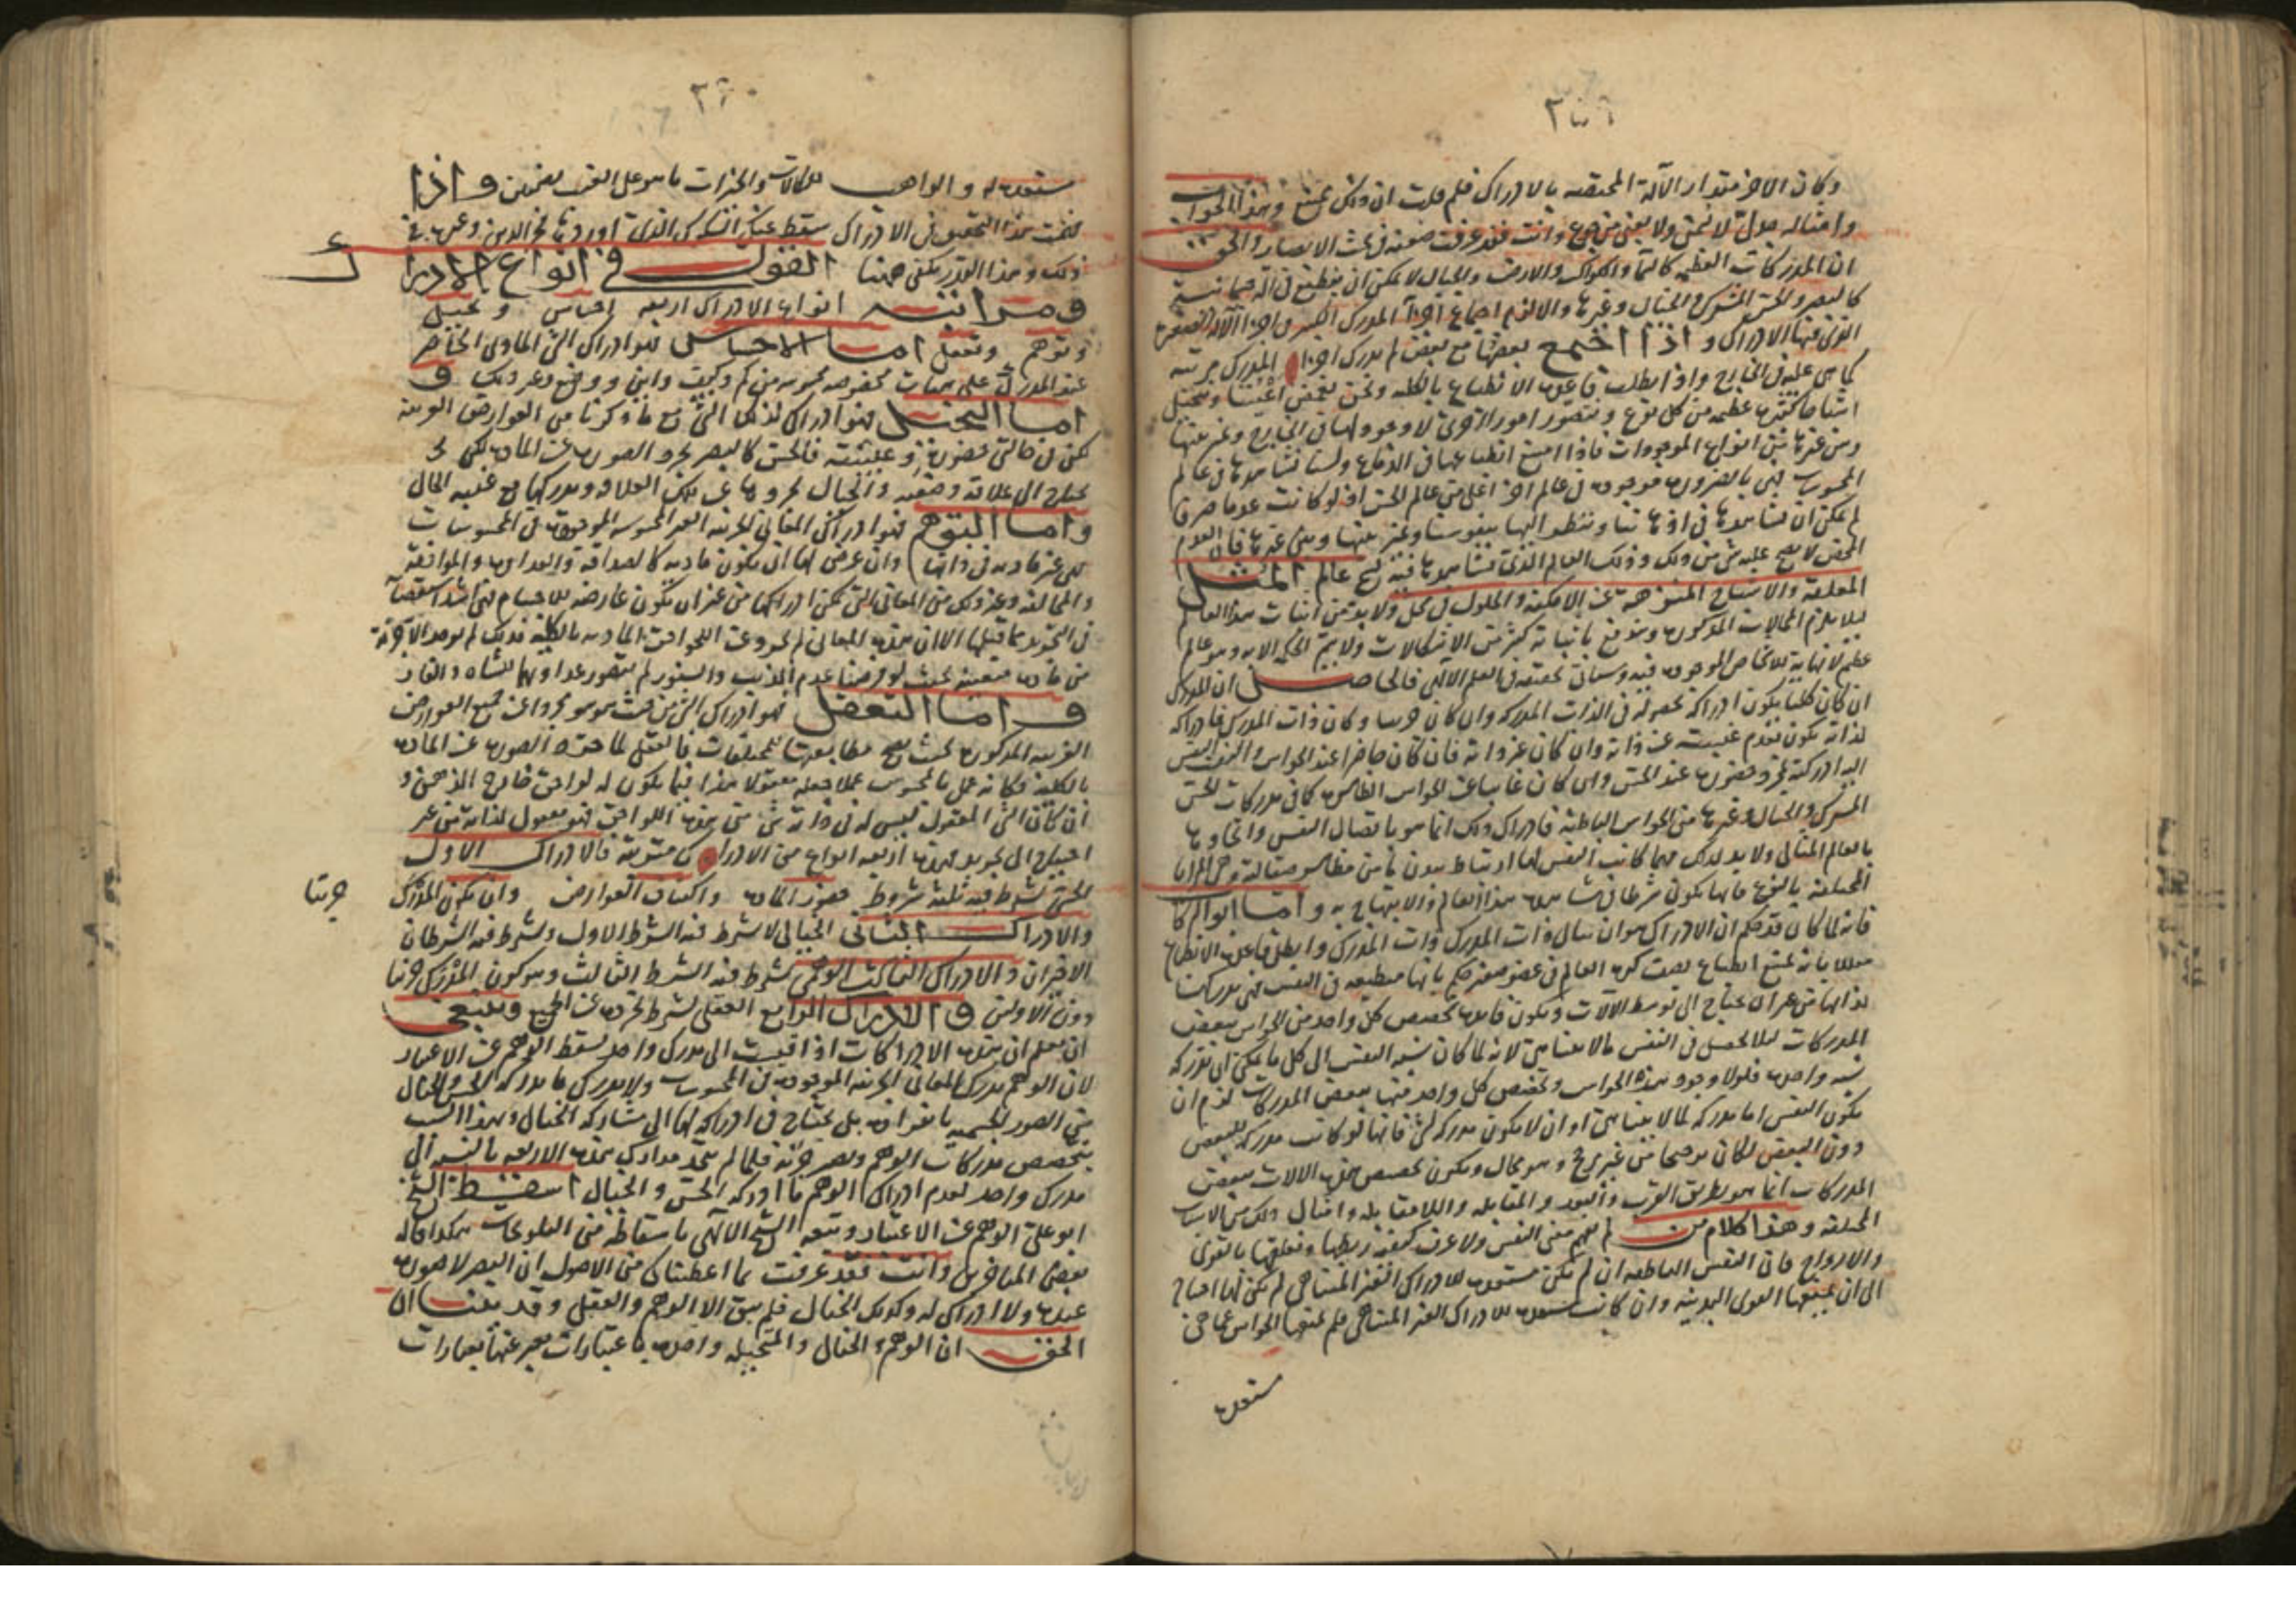 وكان الاخر مقدار الآلة المختصه بالادراك فلم قلت ان ذلك ممتنع وهذا الجواب
وامثاله مما لا يحق ولا يغنى من جوع وانت فقد عرفت ضعفه فى بحث الابصار والحق
ان المدركات العظيمه كالسما والكواكب والارض والجبال لا يمكن ان ينطبع فى آلة جسمانية
كالبصر والحس المشترك والخيال وغيرها والا لزم اجتماع اجزا المدرك الكبير فى اجزا الآلة الصغيرة
التى فيها الادراك واذا اجتمع بعضها مع بعض لم يدرك اجزا المدرك مرتبه
كما هى عليه فى الخارج واذا بطلت قاعده الانطباع بالكليه ونحن نغمض اعيننا ونتخيل
اشباحا كثيره عظيمه من كل نوع ونتصور امورا اخرى لا وجود لها فى الخارج ونميز بينها
وبين غيرها من انواع الموجودات فاذا امتنع انطباعها فى الدماغ ولسنا نشاهدها فى عالم
المحسوسات فهى بالضرورة موجوده فى عالم اخر اعلى من عالم الحس اذ لو كانت عدما صرفا
لم يمكن ان نشاهدها فى اذهاننا وننظر اليها بنفوسنا ونميز بينها وبين غيرها فان العدم
المحض لا يصح عليه شى من ذلك وذلك العالم الذى نشاهدها فيه هو عالم المثل
المعلقة والاشباح المنزهة عن الامكنة والحلول فى محل ولا بد من اثبات هذا العالم
ليلا يلزم المحالات المذكوره ويندفع باثباته كثير من الاشكالات ولا يتم الحكمة الا به وهو عالم
عظيم لا نهاية للاشخاص الموجوده فيه وسياتى تحقيقه فى العلم الالهى فالحاصل ان المدرك
ان كان كليا يكون ادراكه بحصوله فى الذات المدركه وان كان جزييا وكان ذات المدرك فادراكه
لذاته يكون بعدم غيبته عن ذاته وان كان غير ذاته فان كان حاضرا عند الحواس والتفت النفس
اليه ادركته بمجرد حضوره عند الحس وان كان غايبا عن الحواس الظاهره كما فى مدركات الحس
المشترك والخيال وغيرها من الحواس الباطنة فادراك ذلك انما هو باتصال النفس واتحادها
بالعالم المثالى ولا بد لذلك
المختلفة بالنوع فانها يكون شرطا فى مشاهده هذا العالم والابتهاج به واما ابو البركات
فانه لما كان قد حكم ان الادراك هو ان ينال ذات المدرك ذات المدرك وابطل قاعده الانطباع
معللا بانه يمتنع انطباع نصف كره العالم فى عضو صغير حكم بانها منطبعه فى النفس فهى مدركه
لذاتها من غير ان يحتاج الى توسط الآلات ويكون فايده تخصص كل واحد من الحواس ببعض
المدركات ليلا يحصل فى النفس ما لا يتناهى لانه لما كان نسبه النفس الى كل ما يمكن ان تدركه
نسبه واحده فلولا وجود هذه الحواس وتخصص كل واحد منها ببعض المدركات لزم ان
يكون النفس اما مدركه لما لا يتناهى او ان لا يكون مدركه لشى فانها لو كانت مدركه للبعض
دون البعض لكان ترجيحا من غير مرجح وهو محال ويكون تخصص هذه الالات ببعض
المدركات انما هو بطريق القرب والبعد والمقابله واللا مقابله وامثال ذلك من الاسباب
المختلفه وهذا كلام من لم يفهم معنى النفس ولا عرف كيفيه ربطها وتعلقها بالقوى
والارواح فان النفس الناطقه ان لم تكن مستعده للادراك الغير المتناهى لم يكن لها احتياج
الى ان يمنعها القوى البدنيه وان كانت مستعده للادراك الغير المتناهى فلم تمنعها الحواس عما هى
مستعده
٣٦٠
مستعده له والواهب للكمالات والخيرات ما هو على الغيب بضنين واذا
تلخصت هذا التحقيق فى الادراك سقط عنك الشكوك الذى اوردها فخر الدين وغيره فى
ذلك وهذا القدر يكفى ههنا القول فى انواع الادراك
ومراتبه انواع الادراك اربعه احساس وتخيل
وتوهم وتعقل اما الاحساس فهو ادراك الشى المادى الحاضر
عند المدرك على هيات مخصوصه محسوسه من كم وكيف واين ووضع وغير ذلك و
اما التخيل فهو ادراك لذلك الشى مع ما ذكرنا من العوارض الغريبه
لكن فى حالتى حضوره وغيبته فالحس كالبصر يجرد الصوره عن الماده لكن
يحتاج الى علاقة وضعيه والخيال يجردها عن تلك العلاقه ويدركها مع غيبه الحال
واما التوهم فهو ادراك المعانى الجزئيه الغير المحسوسه الموجوده فى المحسوسات
التى غير ماديه فى ذاتها وان عرض لها ان يكون ماديه كالصداقه والعداوه والموافقه
والمخالفه وغير ذلك من المعانى التى يمكن ادراكها من غير ان يكون عارضه للاجسام فهى اشد استقصاء
فى التجريد مما قبلها الا ان هذه المعانى لم تجرد عن اللواحق الماديه بالكليه فذلك لم يوجد الا جزئيه
من ماده معينه بحيث لو فرضنا عدم الذيب والسنور لم يتصور عداوتهما للشاه والفار
واما التعقل فهو ادراك الشى من حيث هو هو مجردا عن جميع العوارض
الغريبه المذكوره بحيث يصح مطابقتها للمختلفات فالعقل لما جرد الصوره عن الماده
بالكليه فكانه عمل بالمحسوس عملا جعله معقولا هذا فيما يكون له لواحق خارج الذهن و
ان كان الشى المعقول ليس له فى ذاته شى من هذه اللواحق فهو معقول لذاته من غير
احتياج الى تجريد فهذه اربعه انواع من الادراك مترتبة فالادراك الاول
الحسى يشترط فيه ثلثه شروط حضور الماده واكتناف العوارض وان يكون المدرك
جزئيا
والادراك الثانى الخيالى لا يشترط فيه الشرط الاول ويشترط فيه الشرطان
الاخيران والادراك الثالث الوهمى يشترط فيه الشرط الثالث وهو كون المدرك جزئيا
دون الاولين والادراك الرابع العقلى يشترط تجرده عن الجميع وينبغى
ان يعلم ان هذه الادراكات اذا اقيست الى مدرك واحد يسقط الوهم عن الاعتبار
لان الوهم يدرك المعانى الجزئيه الموجوده فى المحسوسات ولا يدرك ما يدركه الحس والخيال
من الصور الجسميه بانفراده بل يحتاج فى ادراكه لها الى مشاركه الخيال وبهذا السبب
يتخصص مدركات الوهم ويصير جزئيه فلما لم يتحد مدارك هذه الاربعه بالنسبه الى
مدرك واحد لعدم ادراك الوهم ما ادركه الحس والخيال اسقط الشيخ
ابو على الوهم عن الاعتبار وتبعه الشيخ الالهى باسقاطه من التلويحات هكذا قاله
بعض المتاخرين وانت فقد عرفت مما اعطيناك من الاصول ان البصر لا صوره
عنده ولا ادراك له وكذلك الخيال فلم يبق الا الوهم والعقل وقد بينا ان
الحق ان الوهم والخيال والمتخيله واحده باعتبارات يعبر عنها بعبارات